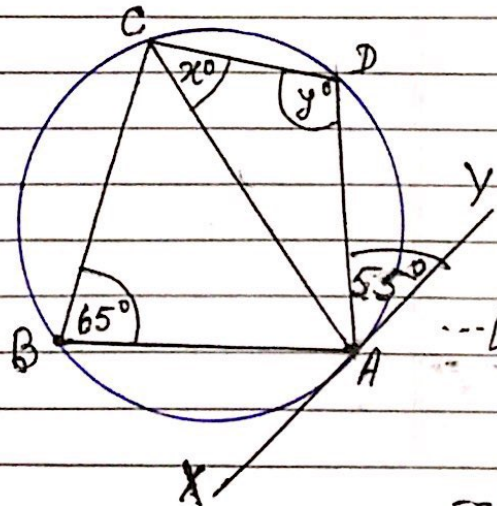 C
D
x°
y°
Y
55°
65°
B
A
X